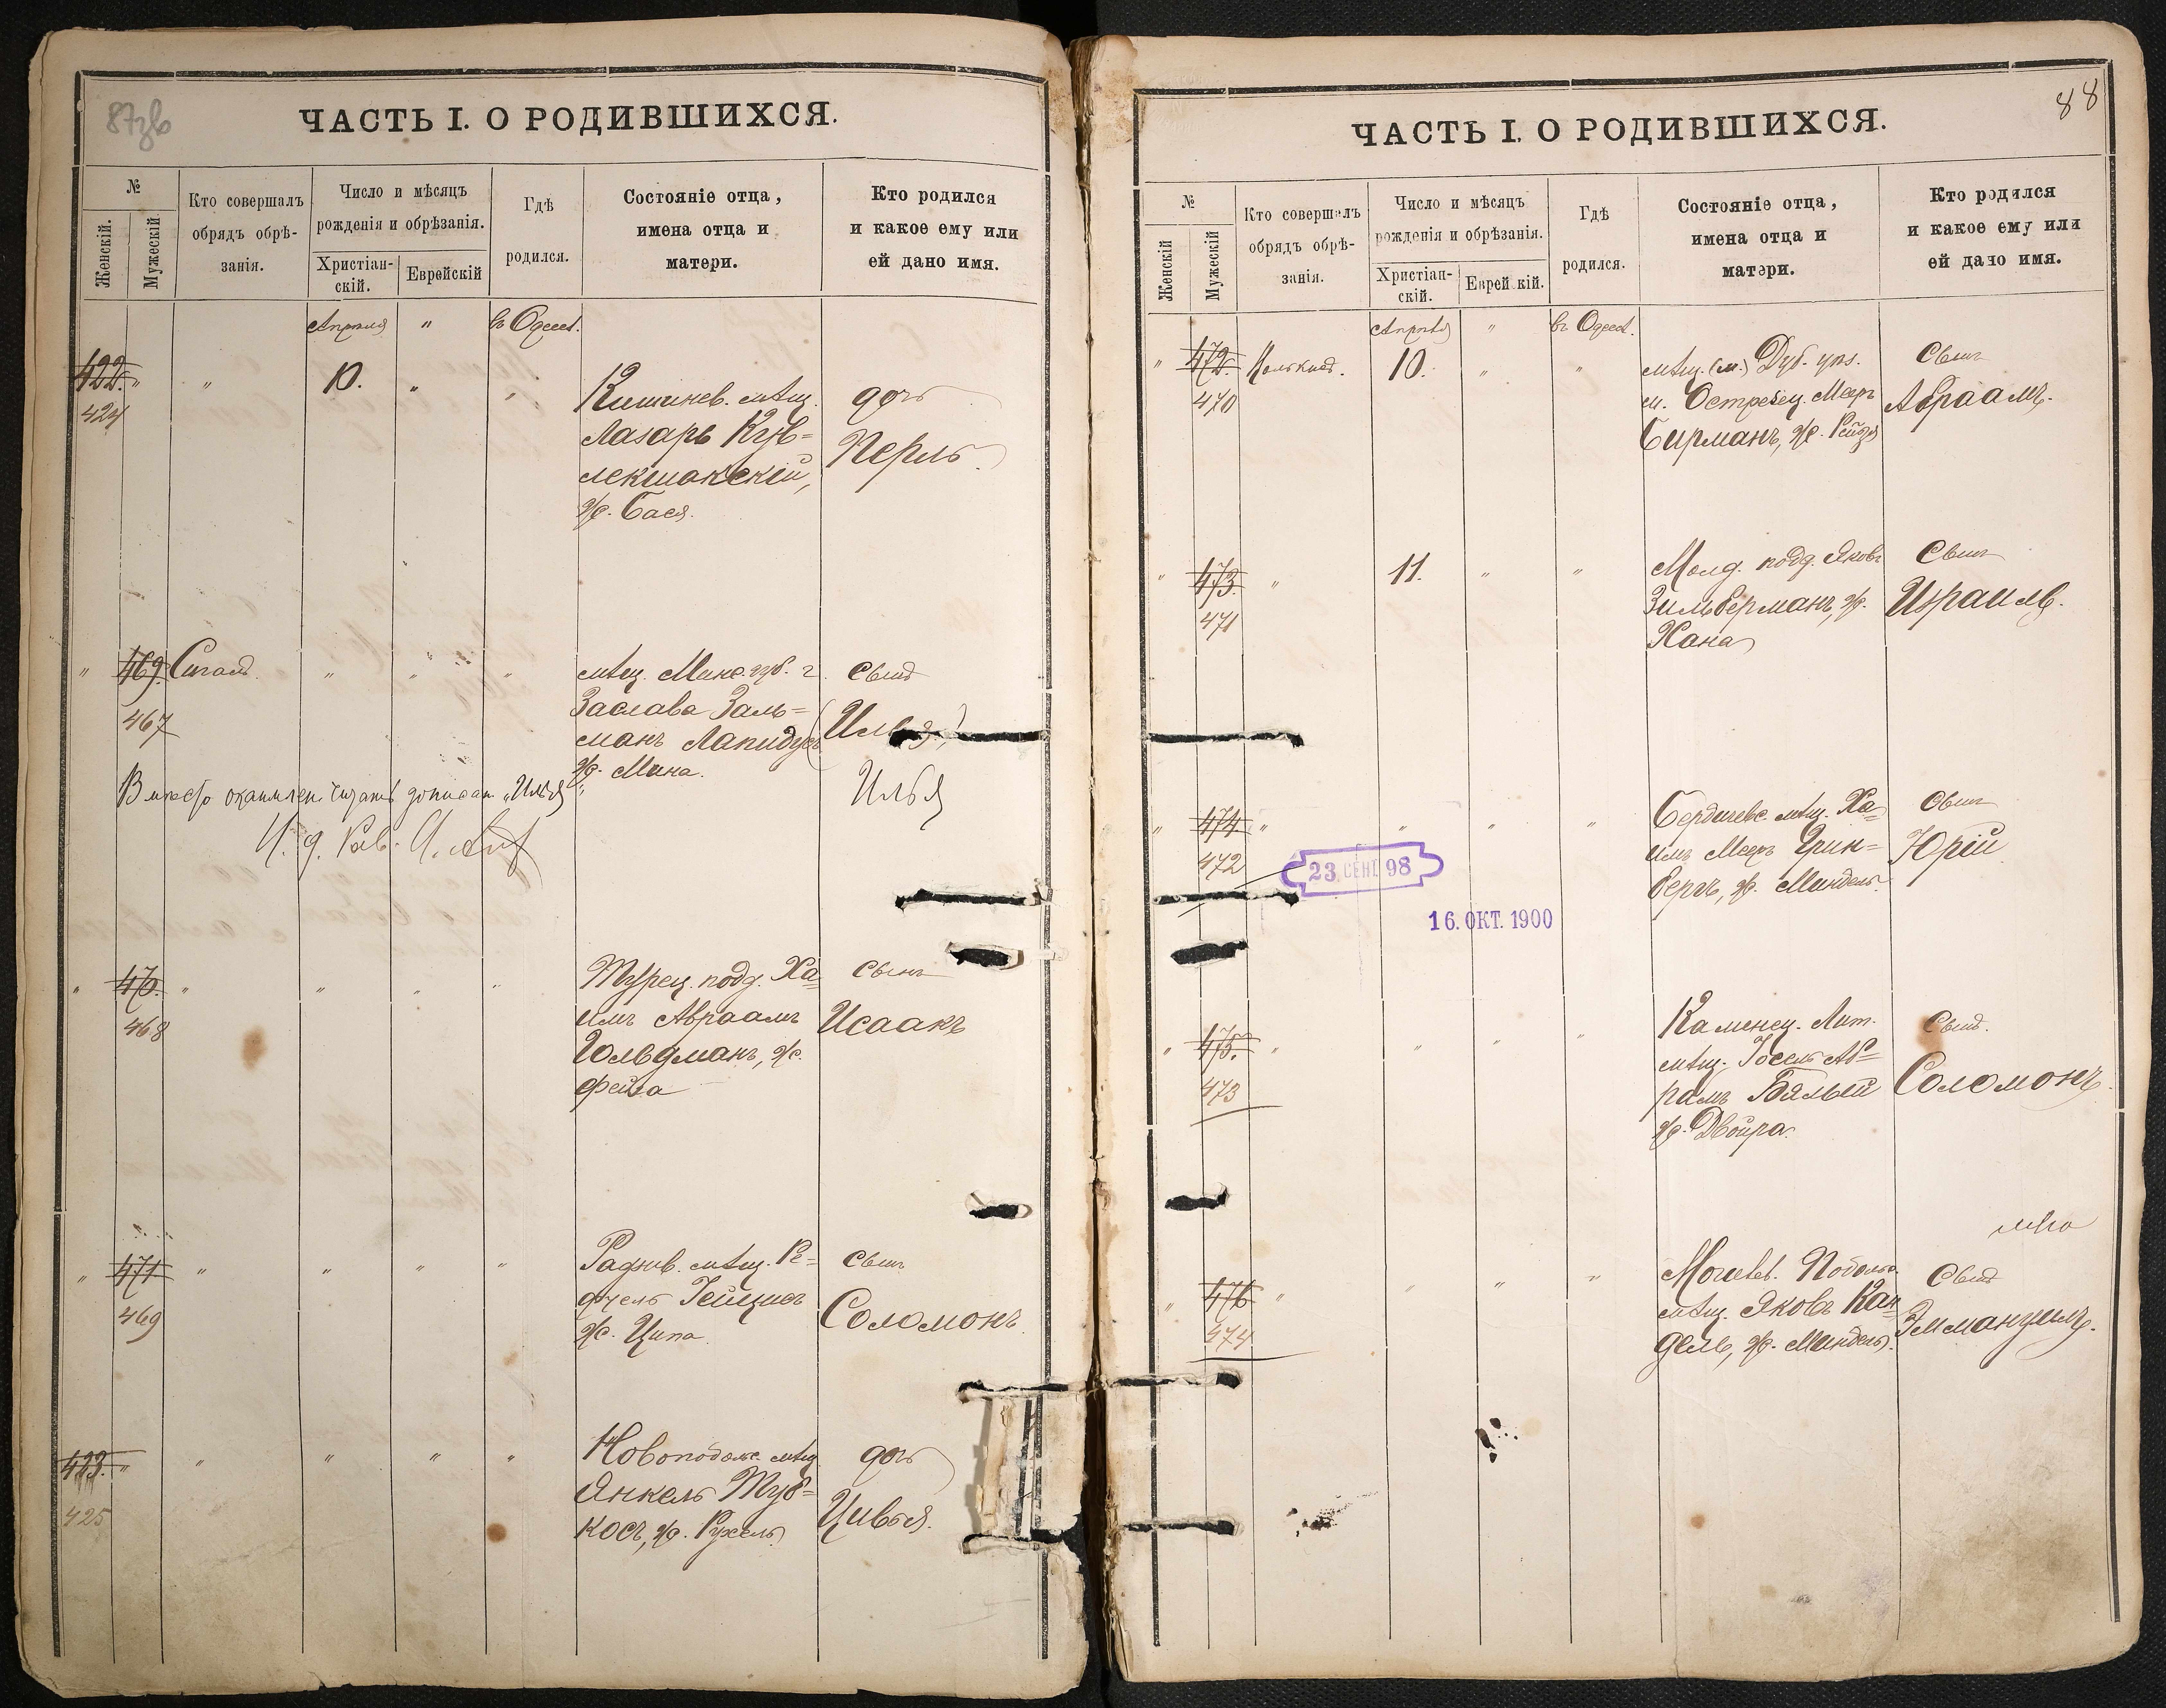 87зв
ЧАСТЬ I. О РОДИВШИХСЯ.
№
Женскій.
Мужескій
Кто совершалъ
обрядъ обрѣ-
занія.
Число и мѣсяцъ
рожденія и обрѣзанія.
Христіан-
скій.
Еврейскій
Гдѣ
родился.
Состояніе отца,
имена отца и
матери.
Кто родился
и какое ему или
ей дано имя.
Апрѣля " въ Одес.
422. " " 10. " "
424
Кишинев. мѣщ.
Лазарь
ж. Бася.
дочь
Перль.
" 469. " " "
467
мѣщ. Минс. губ. г.
Заслава Заль=
манъ Лапидусъ
ж. Мина.
сынъ
(Илья)
Илья
Вмѣсто читать дописан "Илья"
И. д. Рав.
" 470. " " " "
468
Турец. подд. Ха=
имъ Авраамъ
Гольдманъ, ж.
Фейга
сынъ
Исаакъ
" 471 " " " "
469
мѣщ.
ж. Ципа
сынъ
Соломонъ.
423. " " " " "
425
Новоподольс. мѣщ.
Янкель Туб=
косъ, ж. Рухель
дочь
Цивья.
88
ЧАСТЬ I. О РОДИВШИХСЯ.
№
Женскій
Мужескій
Кто совершалъ
обрядъ обрѣ-
занія.
Число и мѣсяцъ
рожденія и обрѣзанія.
Христіан-
скій.
Еврей кій.
Гдѣ
родился.
Состояніе отца,
имена отца и
матери.
Кто родился
и какое ему или
ей дано имя.
Апрѣля " въ Одес.
" 472. 10. " "
470
мѣщ. (м.) Дуб. уѣз.
м. Острожец. Мееръ
Бирманъ, ж. Рейзя
сынъ
Авраамъ.
" 473. " 11. " "
471
Молд. подд. Яковъ
Зильберманъ, ж.
Хана
сынъ
Израиль.
" 474. " " " "
472
Бердичевс. мѣщ. Ха=
имъ Мееръ Грин=
бергъ, ж. Миндель.
сынъ
Юрій
23 СЕНТ 98
16. ОКТ. 1900
" 475. " " " "
473
Каменец. Лит.
мѣщ. Іосель Аб=
рамъ Бялый
ж. Двойра.
сынъ.
Соломонъ.
" 476 " " " "
474
Могилев. Подольс.
мѣщ. Яковъ Кан=
дель, ж. Миндель.
сынъ
Эммануилъ.